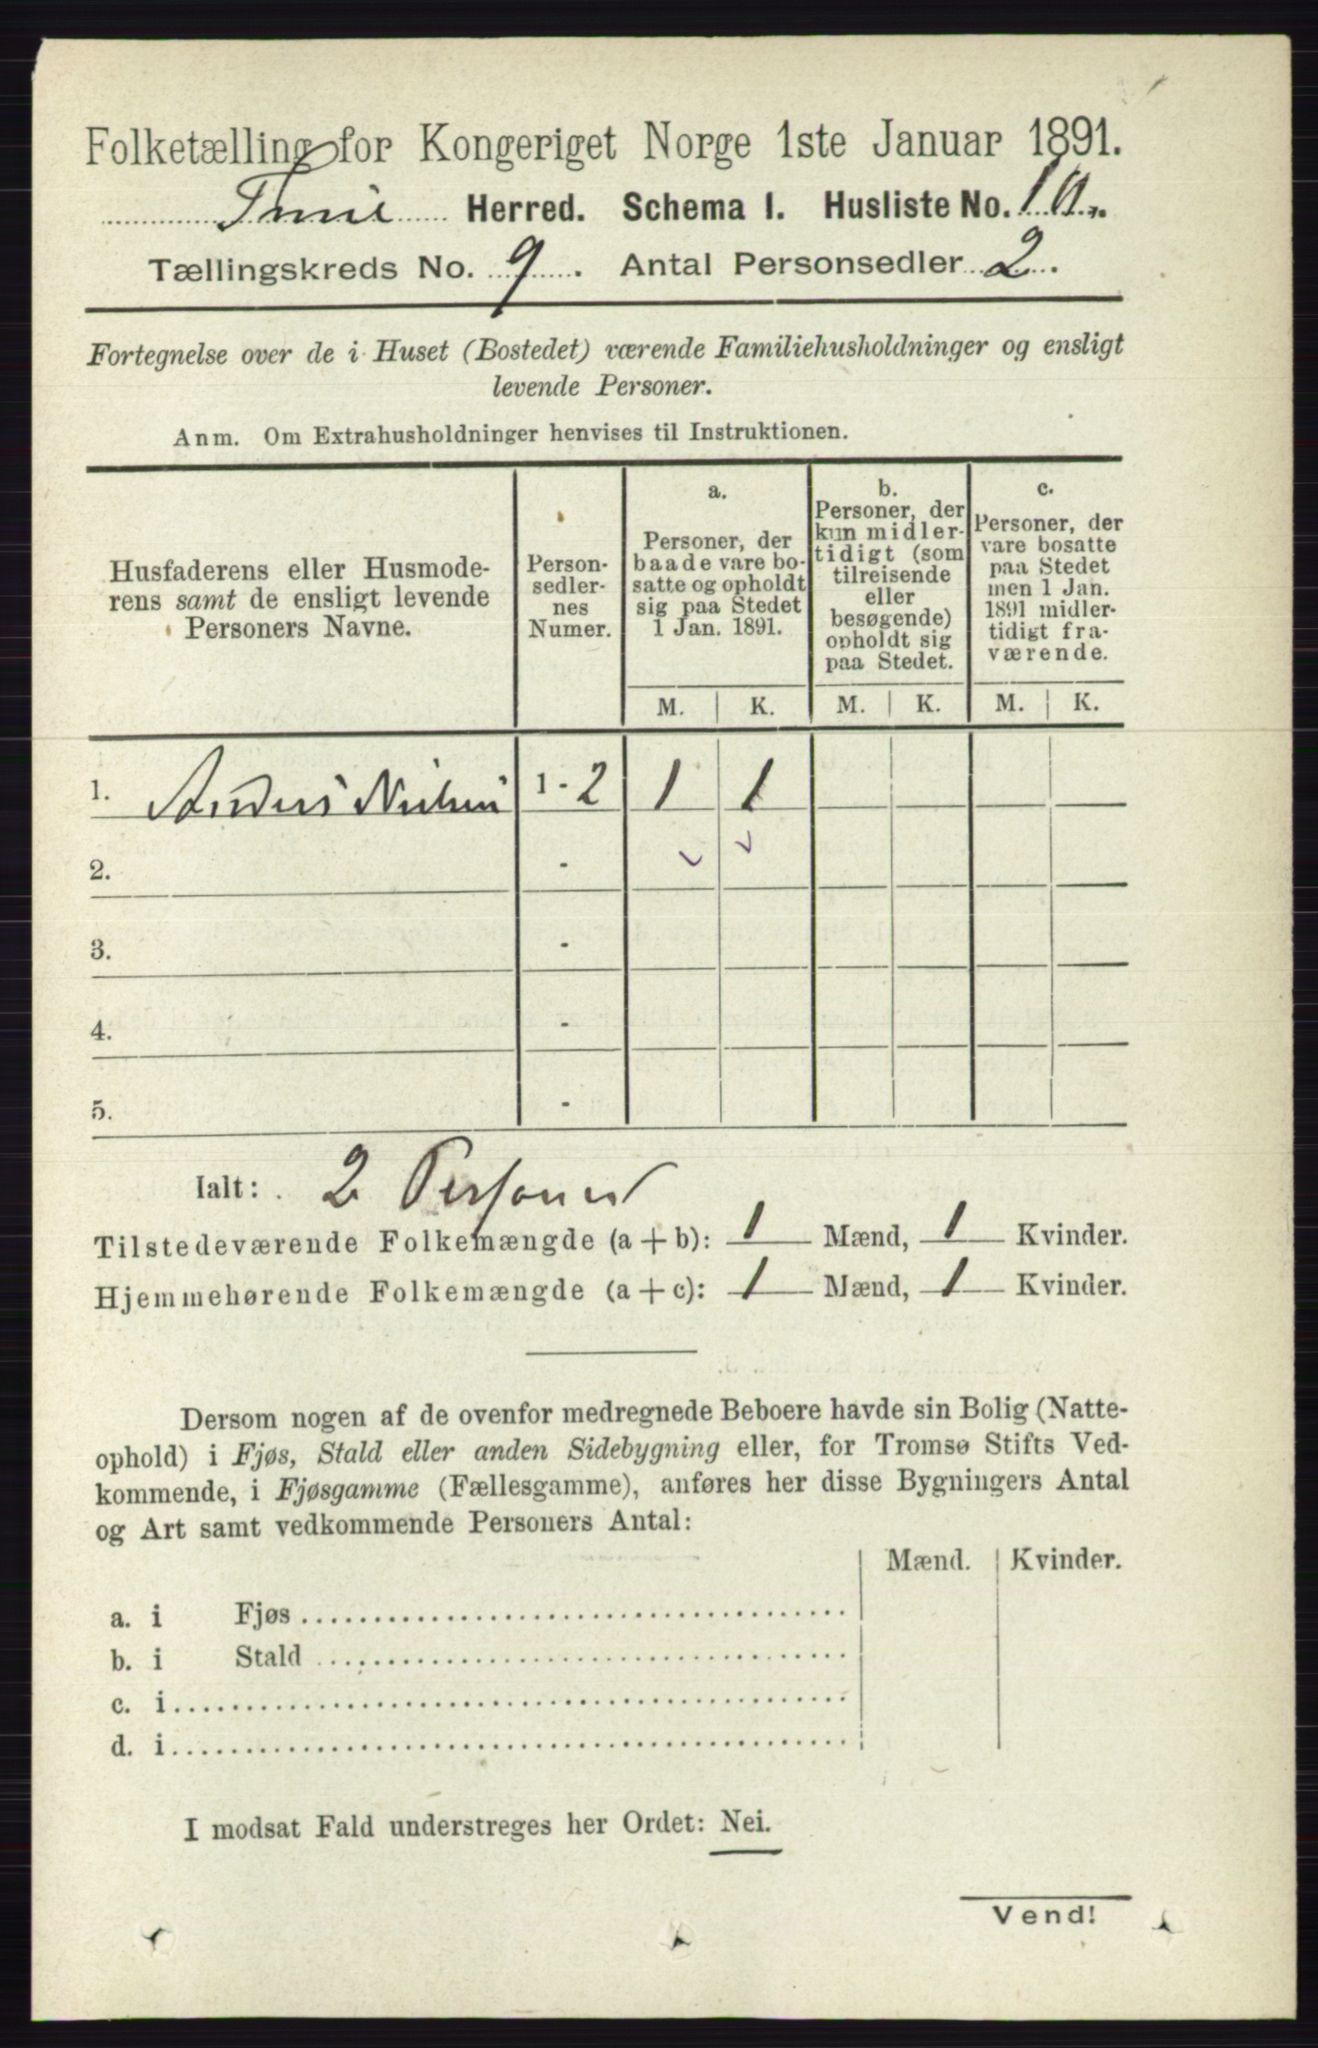 Folketælling for Kongeriget Norge 1ste Januar 1891.
Herred. Schema I. Husliste No.
Tællingskreds No. 9. Antal Personsedler 2.
Fortegnelse over de i Huset (Bostedet) værende Familiehusholdninger og ensligt
levende Personer.
Anm. Om Extrahusholdninger henvises til Instruktionen.
Husfaderens eller Husmode-
rens samt de ensligt levende
Personers Navne.
Person-
sedler-
nes
Numer.
a.
Personer, der
baade vare bo-
satte og opholdt
sig paa Stedet
1 Jan. 1891.
b.
Personer, der
kun midler-
tidigt (som
tilreisende
eller
besøgende)
opholdt sig
paa Stedet.
c.
Personer, der
vare bosatte
paa Stedet
men 1 Jan.
1891 midler-
tidigt fra-
værende.
M. K. M. K. M. K.
1. Anders Nielsen 1 - 2 1 1
2. -
3. -
4. -
5. -
Ialt: 2 Personer
Tilstedeværende Folkemængde (a + b): 1 Mænd, 1 Kvinder.
Hjemmehørende Folkemængde (a + c): 1 Mænd, 1 Kvinder.
Dersom nogen af de ovenfor medregnede Beboere havde sin Bolig (Natte-
ophold) i Fjøs, Stald eller anden Sidebygning eller, for Tromsø Stifts Ved-
kommende, i Fjøsgamme (Fællesgamme), anføres her disse Bygningers Antal
og Art samt vedkommende Personers Antal:
Mænd. Kvinder.
a. i Fjøs
b. i Stald
c. i
d. i
I modsat Fald understreges her Ordet: Nei.
Vend!